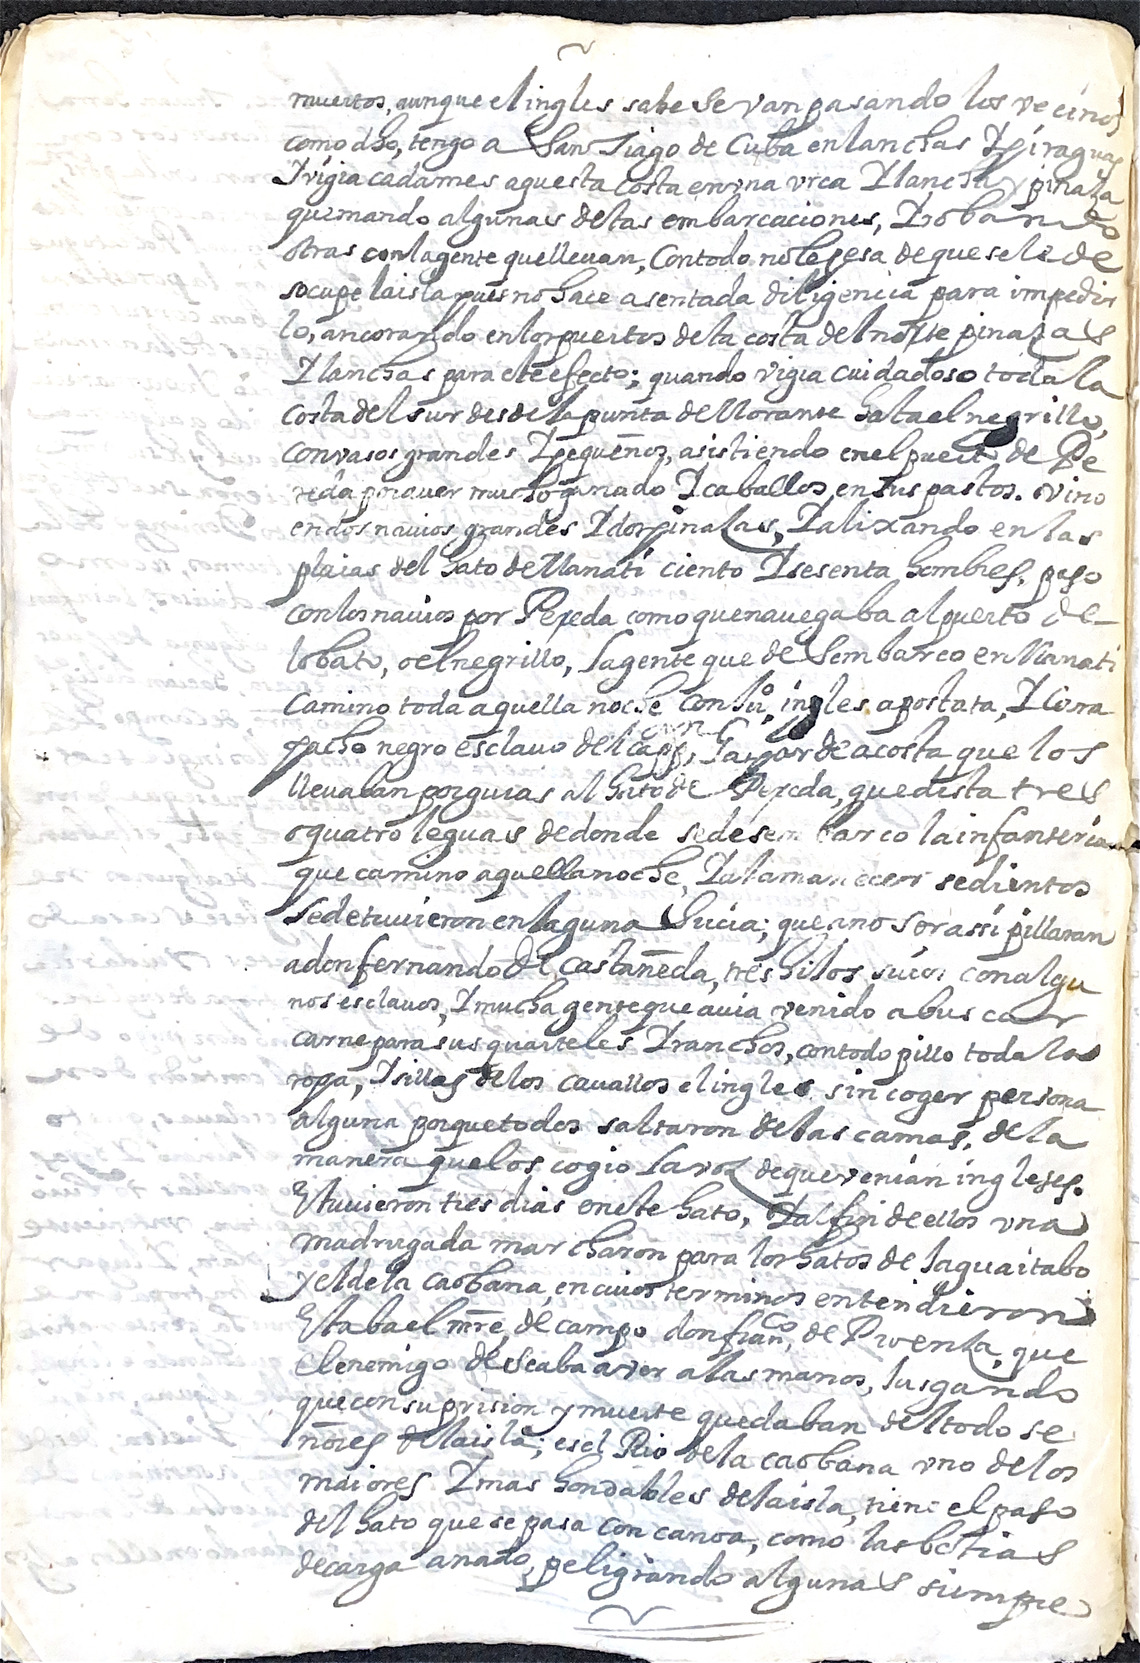 muertos, aunque el ingles sabe se van pasando los vecinos
como dho, tengo a San Tiago de Cuba en lanchas Y piraguas
Y vigia cada mes aquesta costa en vna vrca Y lancha y pinaza
quemando algunas destas embarcaciones, Y robando
otras con la gente que lleuan, Con todo no le pesa de que se le de
socupe la isla pues no hace asentada diligencia para impedir
lo, ancorando en los puertos de la costa del norte pinazas
Y lanchas para este efecto; quando vigia cuidadoso toda la
costa del sur desde la punta de Morante hasta el negrillo,
con vasos grandes Y pequeños, asistiendo en el puerto de Pe
reda por auer mucho ganado Y caballos en sus pastos. vino
en dos nauios grandes Y dos pinasas, Y alixando en las
plaias del hato de Manatí ciento Y sesenta hombres, paso
con los nauios por Pereda como que nauegaba al puerto de
lobato, o el negrillo, la gente que desembarco en Manatí
Camino toda aquella noche con su ingles apostata, Y Corra
pacho negro esclauo del capn, Gaspar de acosta que los
lleuaban por guias al hato de Pereda, que dista tres
o quatro leguas de donde se desembarco la infanteria
que camino aquella noche, Y al amanecer sedientos
se detuuieron en laguna Sucia; que a no ser assi pillaran
a don fernando de Castañeda, tres hilos suios con algu
nos esclauos, Y mucha gente que auia venido a buscar
carne para sus quarteles Y ranchos, con todo pillo toda la
ropa, Y sillas de los cauallos el ingles sin coger persona
alguna porque todos saltaron de las camas, de la
manera que los cogio la voz de que venian ingleses.
Estuuieron tres dias en este hato, Y al fin de ellos vna
madrugada marcharon para los hatos de Iaguaitabo
y el de la caobana, en cuios terminos entendieron
Estaba el mre, de campo don franco, de Proenza, que
el enemigo desseaba aver a las manos, Iusgando
que con su prision y muerte quedaban del todo se
ñores de la isla; es el Rio de la caobana vno de los
maiores Y mas hondables de la isla, tiene el paso
del hato que se pasa con canoa, como las bestias
de carga a nado, peligrando algunas siempre